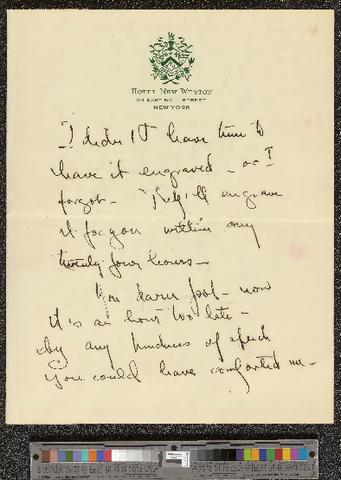 HOTEL NEW WESTON
34 EAST 50TH STREET
NEW YORK
I didn't have time to
have it engraved - or I
forgot - They'll engrave
it for you within any
twenty four hours -
You darn fool - now
it's an hour too late -
by any kindness of speech
you could have comforted me -